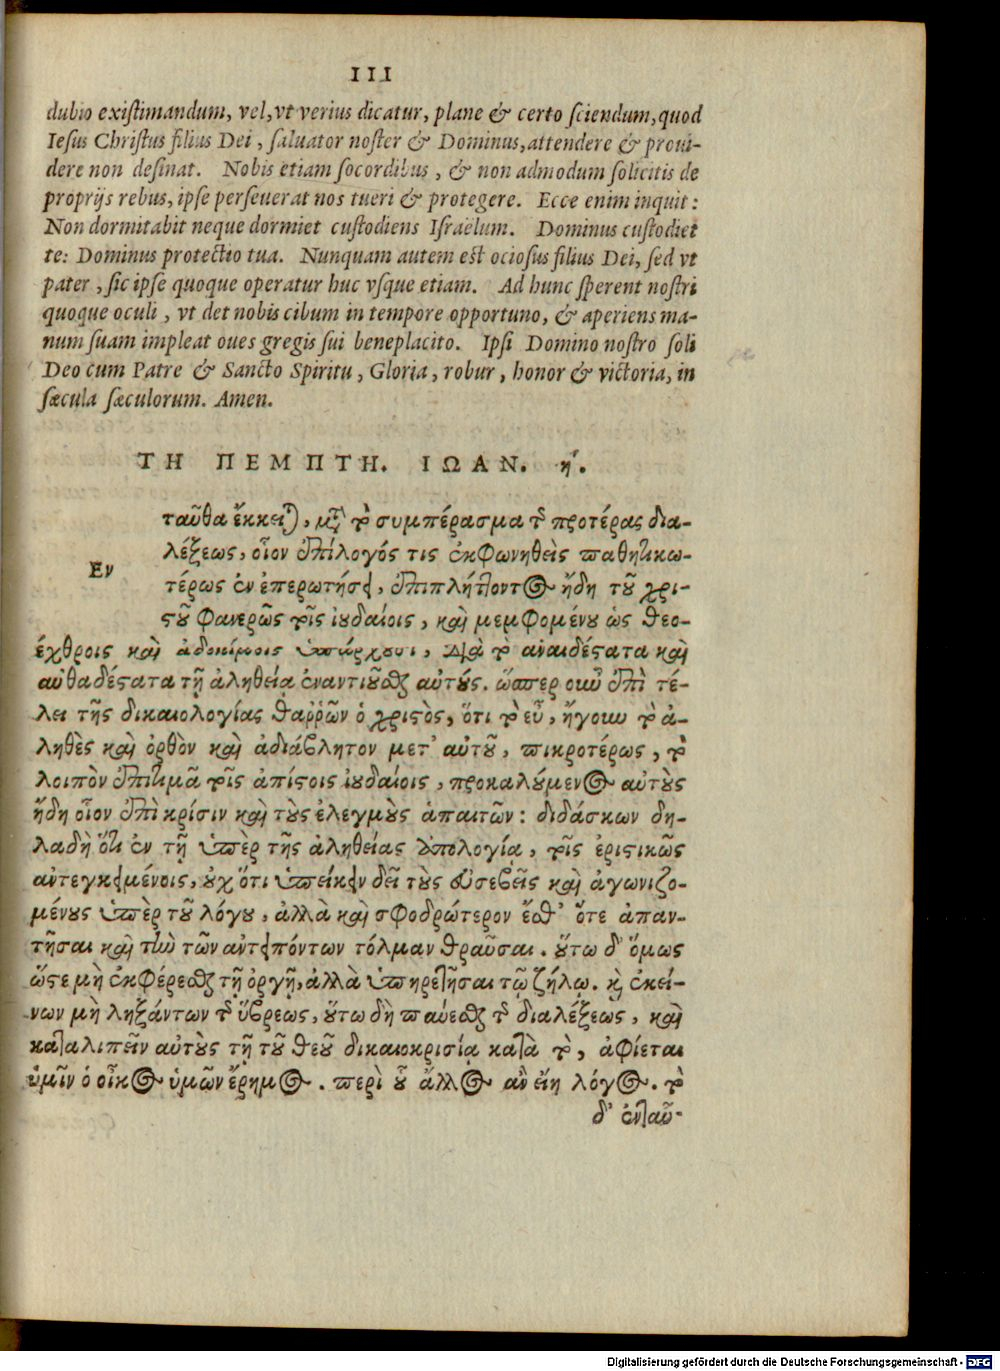 III
dubio existimandum, vel, vt verius dicatur, plane & certo sciendum, quod
Iesus Christus filius Dei, saluator noster & Dominus, attendere & proui-
dere non desinat. Nobis etiam socordibus, & non admodum solicitis de
proprijs rebus, ipse perseuerat nos tueri & protegere. Ecce enim inquit:
Non dormitabit neque dormiet custodiens Israëlum. Dominus custodiet
te: Dominus protectio tua. Nunquam autem est ociosus filius Dei, sed vt
pater, sic ipse quoque operatur huc vsque etiam. Ad hunc sperent nostri
quoque oculi, vt det nobis cibum in tempore opportuno, & aperiens ma-
num suam impleat oues gregis sui beneplacito. Ipsi Domino nostro soli
Deo cum Patre & Sancto Spiritu, Gloria, robur, honor & victoria, in
sæcula sæculorum. Amen.
ΤΗ ΠΕΜΠΤΗ. ΙΩΑΝ. η΄.
Εν
ταῦθα ἔκκειται, μετὰ τὸ συμπέρασμα τῆς προτέρας δια-
λέξεως, οἷον ἐπίλογός τις ἐκφωνηθεὶς παθητικω-
τέρως ἐν ἐπερωτήσει, ἐπιπλήττοντος ἤδη τοῦ χρι-
στοῦ φανερῶς τοῖς ἰουδαίοις, καὶ μεμφομένου ὡς θεο-
έχθροις καὶ ἀδοκίμοις ὑπάρχουσι, διὰ τὸ ἀναιδέστατα καὶ
αὐθαδέστατα τῇ ἀληθείᾳ ἐναντιοῦσθαι αὐτούς. ὥσπερ οὖν ἐπὶ τέ-
λει τῆς δικαιολογίας θαῤῥῶν ὁ χριστὸς, ὅτι τὸ εὖ, ἤγουν τὸ ἀ-
ληθὲς καὶ ὀρθὸν καὶ ἀδιάβλητον μετ' αὐτοῦ, πικροτέρως, τὸ
λοιπὸν ἐπιτιμᾷ τοῖς ἀπίστοις ἰουδαίοις, προκαλούμενος αὐτοὺς
ἤδη οἷον ἐπὶ κρίσιν καὶ τοὺς ἐλεγμοὺς ἀπαιτῶν: διδάσκων δη-
λαδὴ ὅτι ἐν τῇ ὑπὲρ τῆς ἀληθείας ἀπολογίᾳ, τοῖς ἐριστικῶς
ἀντεγκειμένοις, οὐχ ὅτι ὑπείκειν δεῖ τοὺς εὐσεβεῖς καὶ ἀγωνιζο-
μένους ὑπὲρ τοῦ λόγου, ἀλλὰ καὶ σφοδρώτερον ἔσθ' ὅτε ἀπαν-
τῆσαι καὶ τὴν τῶν ἀντειπόντων τόλμαν θραῦσαι. οὕτω δ' ὅμως
ὥστε μὴ ἐκφέρεσθαι τῇ ὀργῇ, ἀλλὰ ὑπηρετῆσαι τῷ ζήλῳ. καὶ ἐκεί-
νων μὴ ληξάντων τῆς ὕβρεως, οὕτω δὴ παύεσθαι τῆς διαλέξεως, καὶ
καταλιπεῖν αὐτοὺς τῇ τοῦ θεοῦ δικαιοκρισίᾳ κατὰ τὸ, ἀφίεται
ὑμῖν ὁ οἶκος ὑμῶν ἔρημος. περὶ οὗ ἄλλος ἂν εἴη λόγος. τὸ
δ' ἐνταῦ-
Digitalisierung gefördert durch die Deutsche Forschungsgemeinschaft - DFG